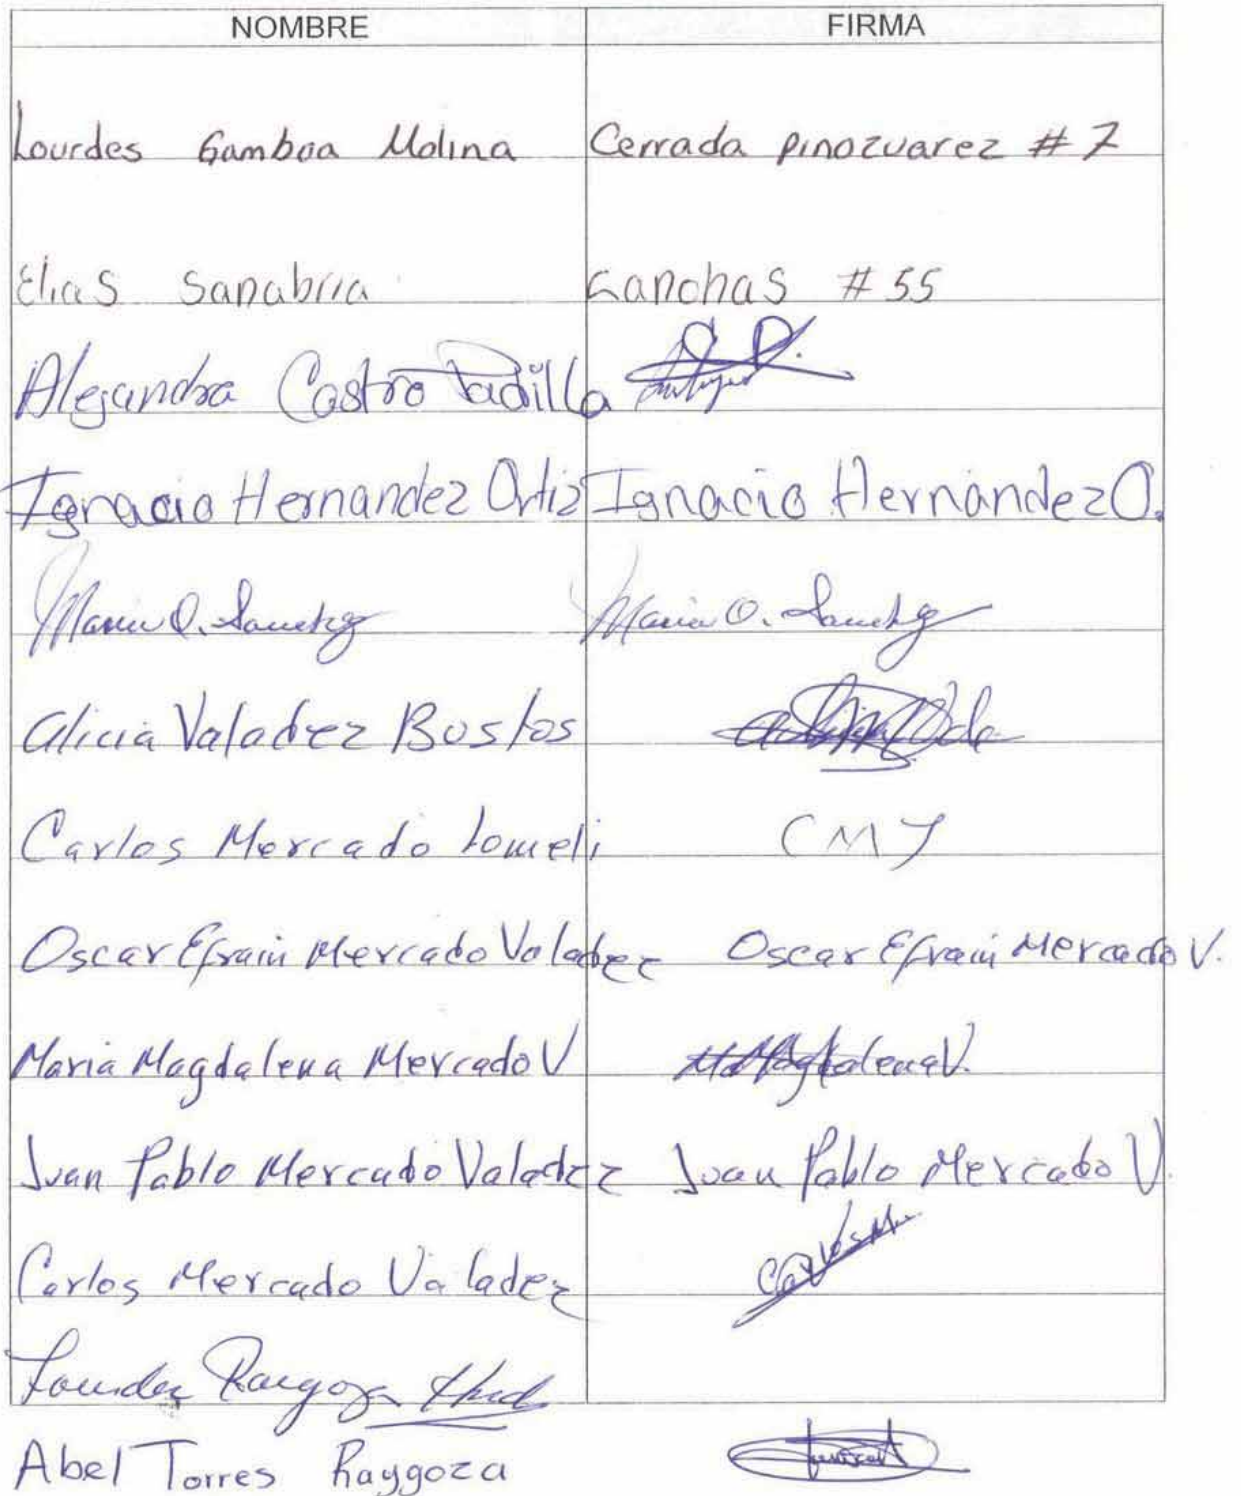 NOMBRE FIRMA
Lourdes Gamboa Molina Cerrada pinozuarez # 7
Elias Sanabria Canchas # 55
Alejandra Castro Padilla
Ignacio Hernandez Ortiz Ignacio Hernández O.
Maria O. Sanchez Maria O. Sanchez
Alicia Valadez Bustos
Carlos Mercado Lomeli CML
Oscar Efrain Mercado Valadez Oscar Efrain Mercado V.
Maria Magdalena Mercado V M. Magdalena V.
Juan Pablo Mercado Valadez Juan Pablo Mercado V.
Carlos Mercado Valadez Carlos M.
Lourdes Raygoza
Abel Torres Raygoza